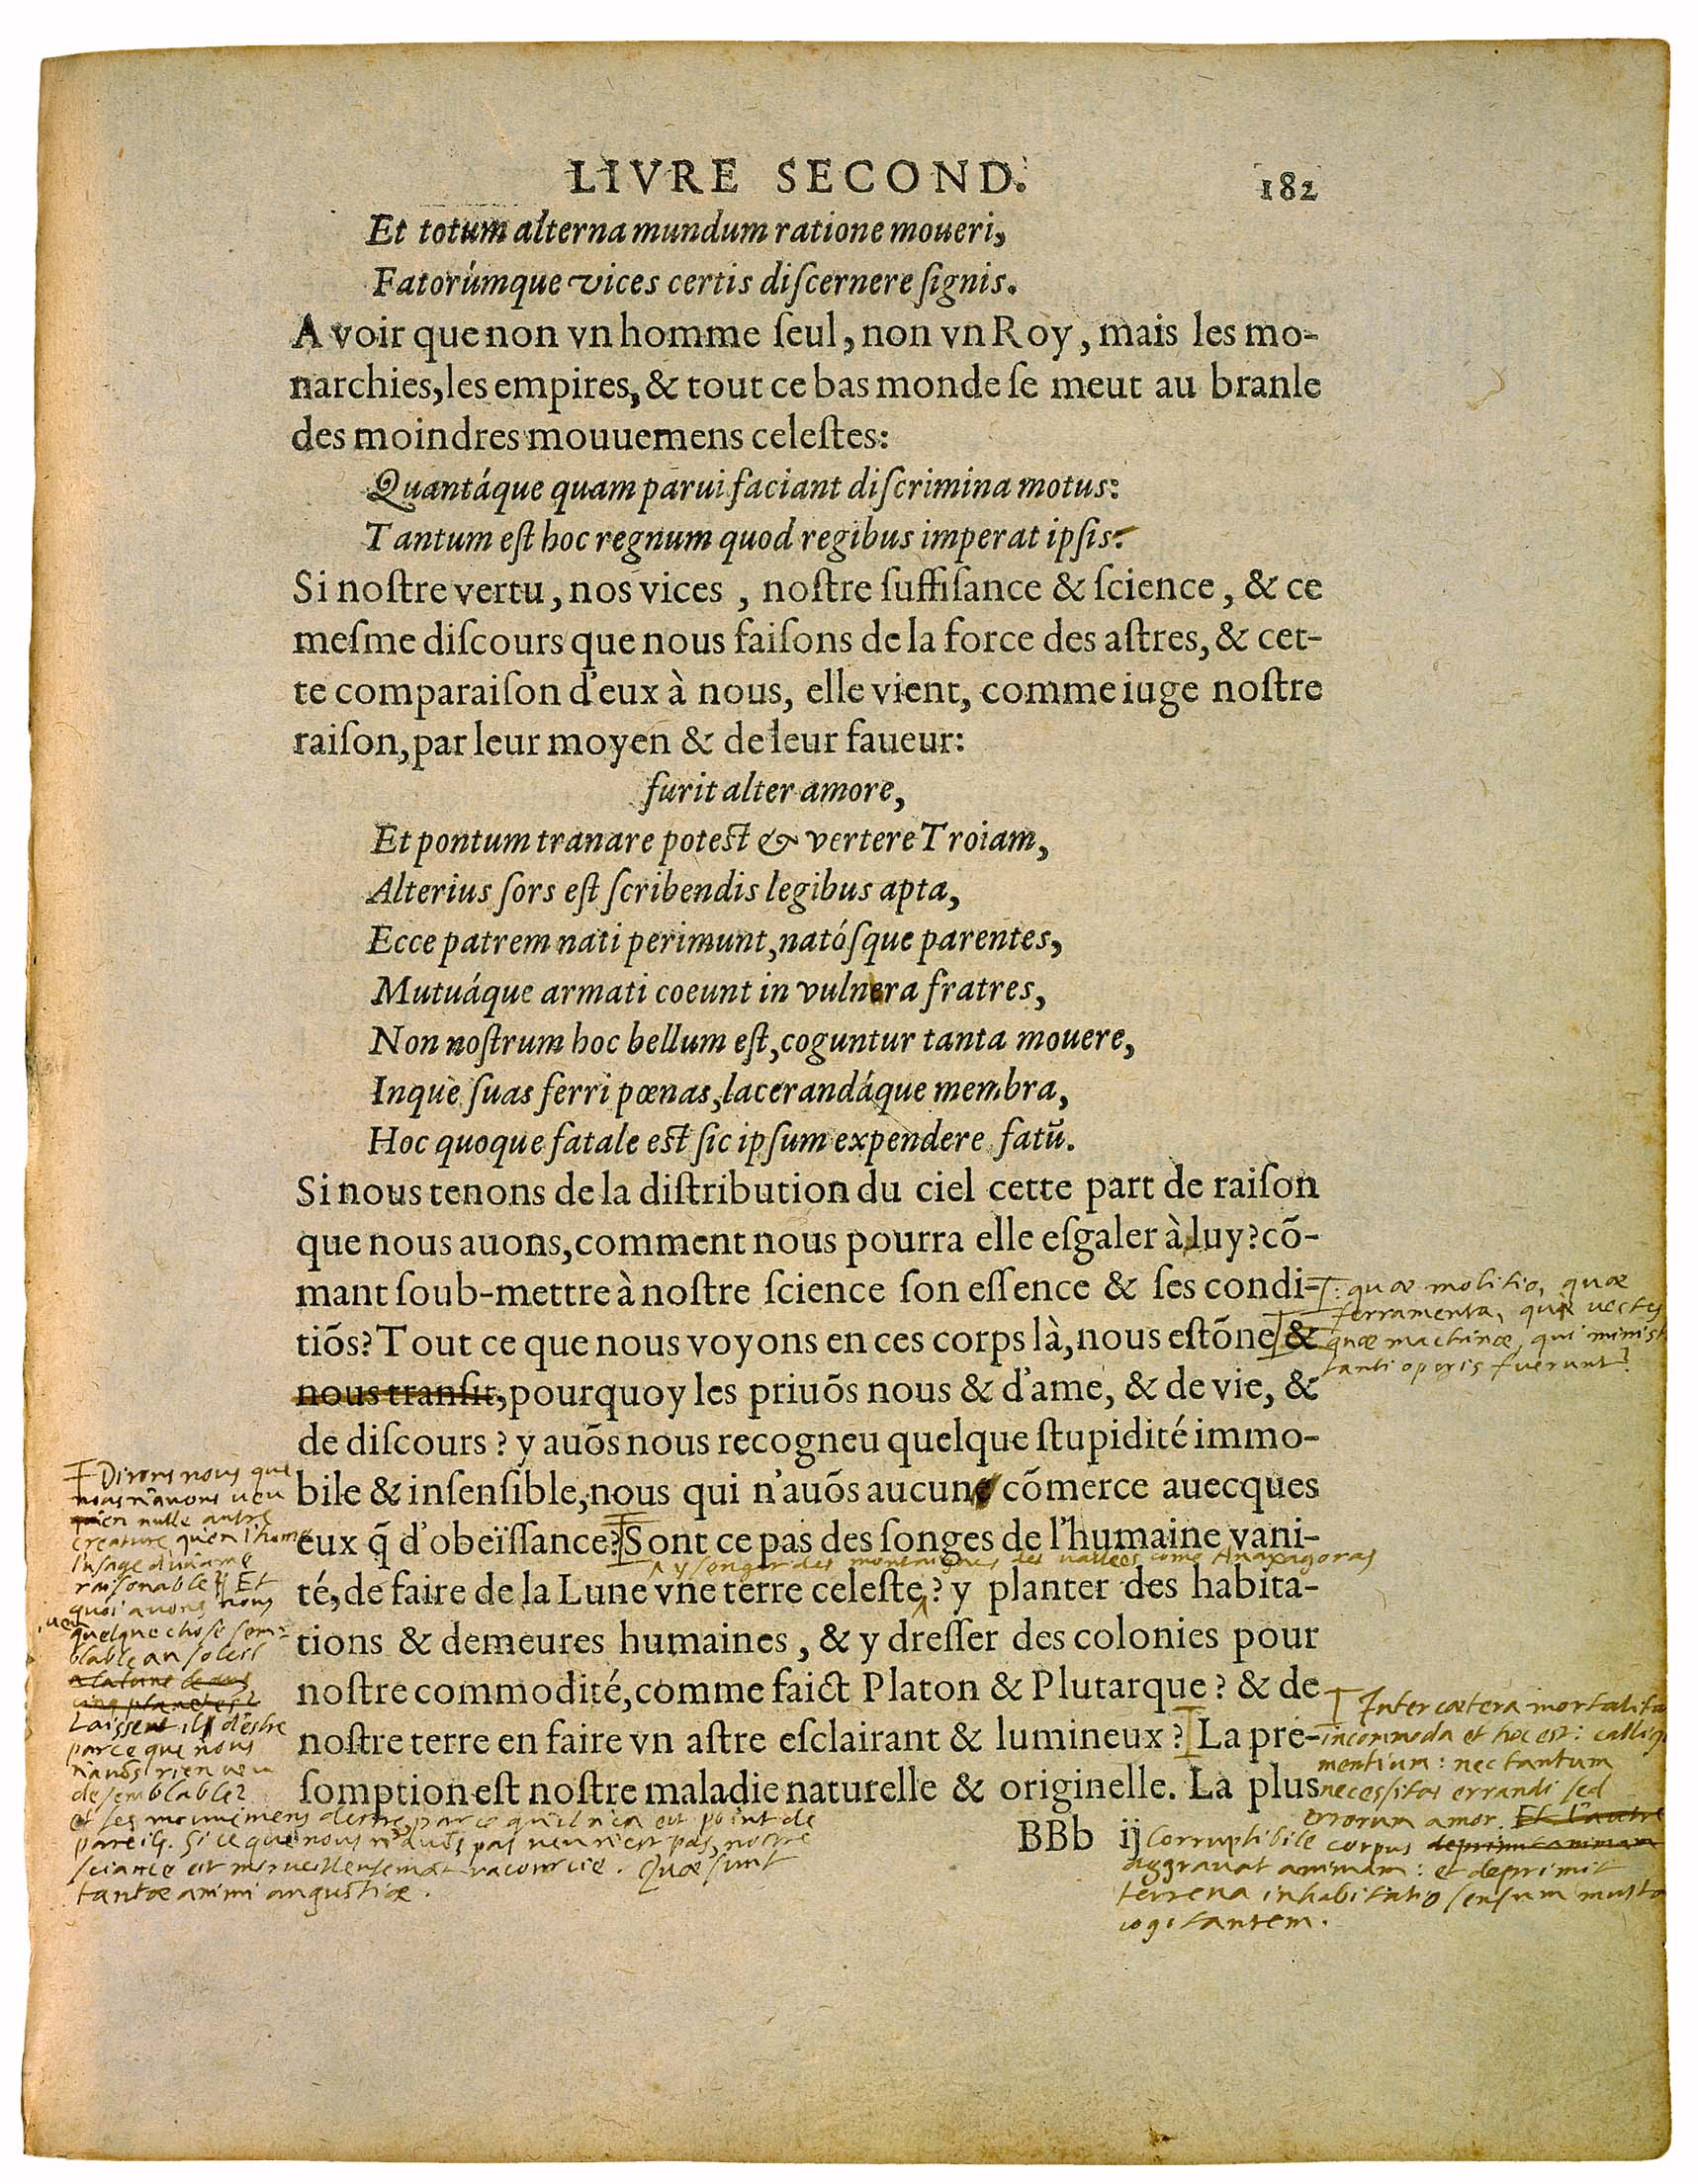 LIVRE SECOND. 182
Et totum alterna mundum ratione moueri,
Fatorúmque vices certis diſcernere ſignis.
A voir que non vn homme ſeul, non vn Roy, mais les mo-
narchies, les empires, & tout ce bas monde ſe meut au branle
des moindres mouuemens celeſtes:
Quantáque quam parui faciant diſcrimina motus:
Tantum eſt hoc regnum quod regibus imperat ipſis.
Si noſtre vertu, nos vices, noſtre ſuffiſance & ſcience, & ce
meſme diſcours que nous faiſons de la force des aſtres, & cet-
te comparaiſon d'eux à nous, elle vient, comme iuge noſtre
raiſon, par leur moyen & de leur faueur:
furit alter amore,
Et pontum tranare poteſt & vertere Troiam,
Alterius ſors eſt ſcribendis legibus apta,
Ecce patrem nati perimunt, natóſque parentes,
Mutuáque armati coeunt in vulnera fratres,
Non noſtrum hoc bellum eſt, coguntur tanta mouere,
Inque ſuas ferri pœnas, lacerandáque membra,
Hoc quoque fatale eſt ſic ipſum expendere fatũ.
Si nous tenons de la diſtribution du ciel cette part de raiſon
que nous auons, comment nous pourra elle eſgaler à luy? cõ-
mant ſoub-mettre à noſtre ſcience ſon eſſence & ſes condi-
tiõs? Tout ce que nous voyons en ces corps là, nous eſtõne &
nous tranſit, pourquoy les priuõs nous & d'ame, & de vie, &
de diſcours? y auõs nous recogneu quelque ſtupidité immo-
bile & inſenſible, nous qui n'auõs aucune cõmerce auecques
eux q̃ d'obeïſſance? Sont ce pas des ſonges de l'humaine vani-
y songer des montaignes des vallees come Anaxagoras
té, de faire de la Lune vne terre celeſte? y planter des habita-
tions & demeures humaines, & y dreſſer des colonies pour
noſtre commodité, comme faict Platon & Plutarque? & de
noſtre terre en faire vn aſtre eſclairant & lumineux? La pre-
ſomption eſt noſtre maladie naturelle & originelle. La plus
BBb ij
: quæ molitio, quæ
ferramenta, qui vectes
quæ machinæ, qui minist
tanti operis fuerunt?
Dirons nous que
nous n'avons veu
qu'en nulle autre
creature qu'en l'home
l'usage d'un'ame
raisonable? Et
quoi avons nous
veu quelque chose sem-
blable au soleil
a la lune
cinq planetes?
Laissent ils d'estre
parce que nous
n'avõs rien veu
de semblable?
et ses mouvemens d'estre parce qu'il n'en est point de
pareils. Si ce que nous n'avõs pas veu n'est pas, nostre
sciance est merveilleusemãt racourcie. Quæ sunt
tantæ animi angustiæ.
Inter cætera mortalita
incommoda et hoc est: calligo
mentium: nec tantum
necessitas errandi sed
errorum amor. Et l'autre
Corruptibile corpus deprimit animam
aggravat animam: et deprimit
terrena inhabitatio sensum multa
cogitantem.